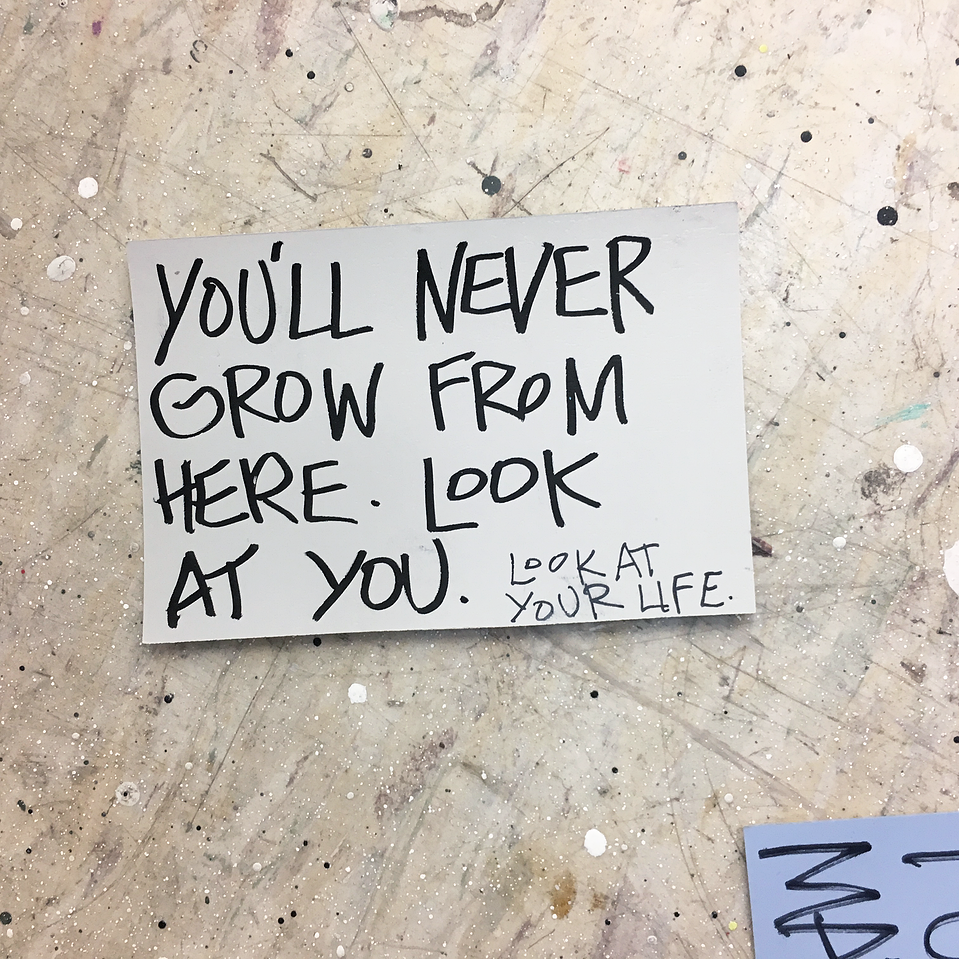 YOU'LL NEVER
GROW FROM
HERE. LOOK
AT YOU.
LOOK AT
YOUR LIFE.